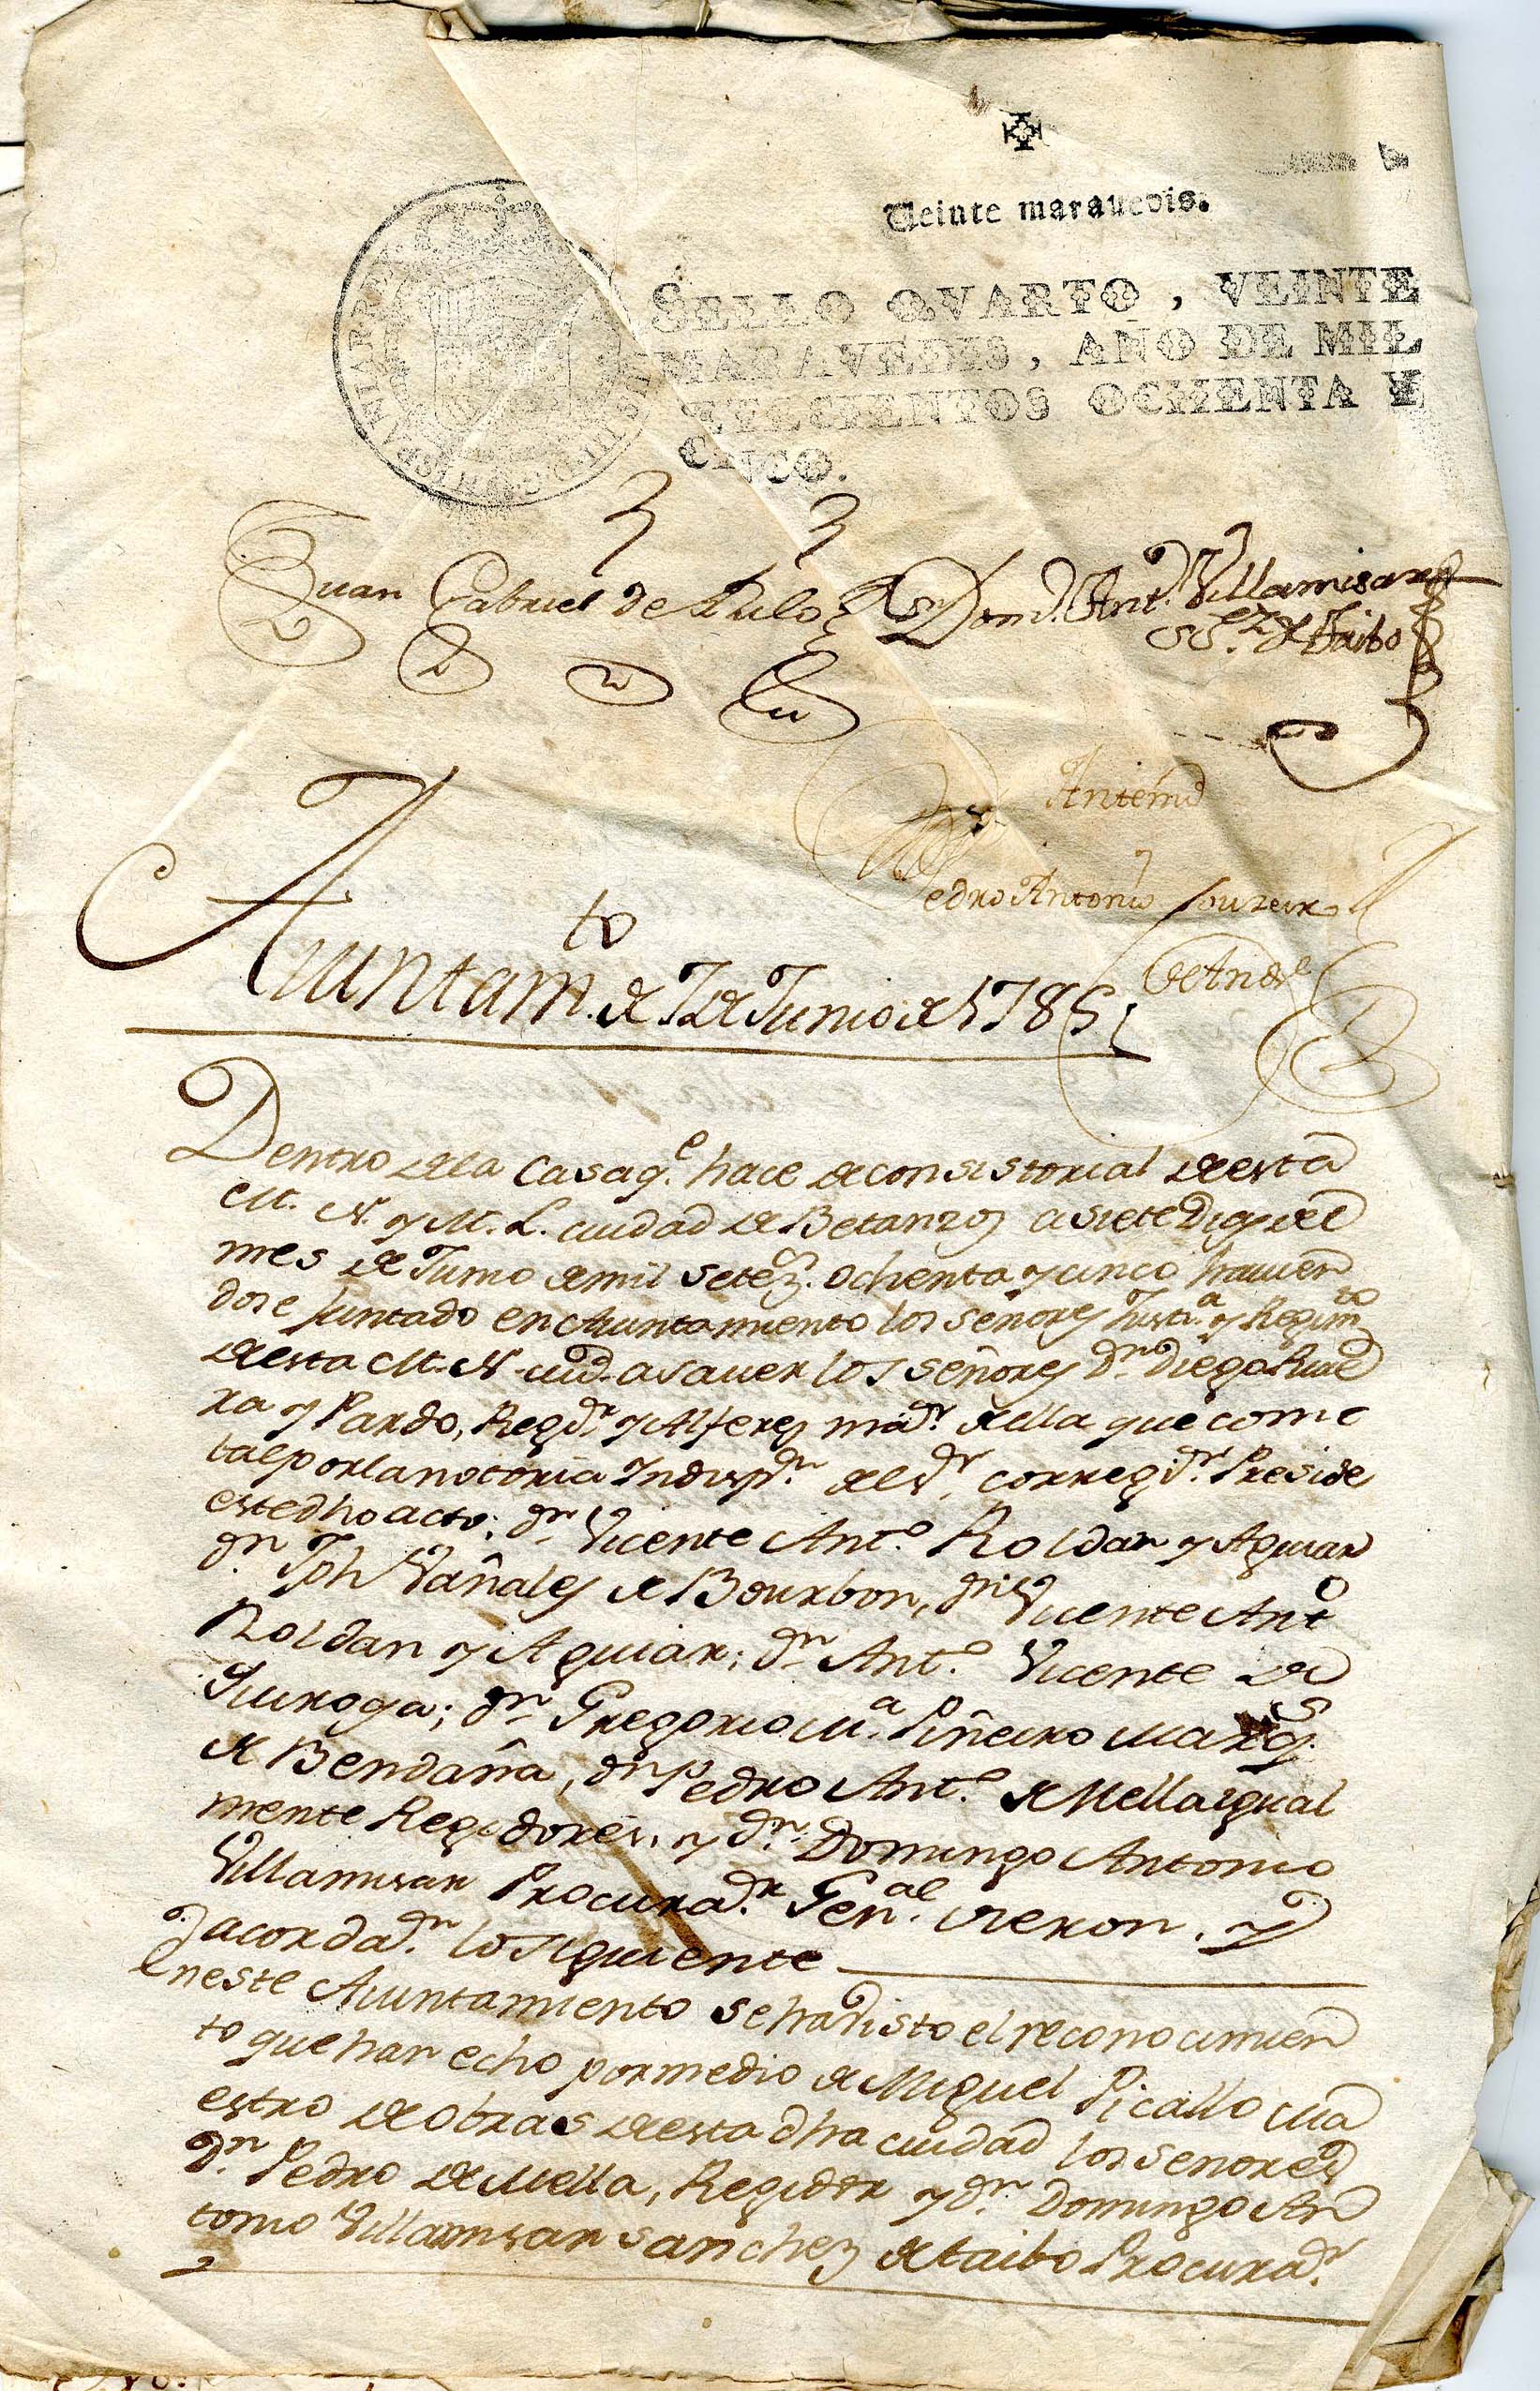 Veinte marauedis.
SELLO QVARTO, VEINTE
MARAVEDIS, AÑO DE MIL
SETECIENTOS OCHENTA Y
CINCO.
HISPANIAR REX
Juan Gabriel de Dom.º Ant.º Villamisar
Sz. de Taibo
Antemi
Pedro Antonio Couzeiro
de And.e
Aiuntam.to de 7 de Junio de 1785
Dentro dela Casa q.e hace de consistorial de esta
M. N. y M. L. ciudad de Betanzos a siete Dias del
mes de Junio de mil setez.s ochenta y cinco havien
dose Juntado en Aiuntamiento los señores Just.a y Regim.to
de esta M. N. ciud. a saver los señores D.n Diego Rive
ra y Pardo, Reg.dr y Alferez ma.r de ella que como
tal por la notoria Indisp.n del s.r correg.dr Preside
este dho acto; d.n Vicente Ant.o Roldan y Aguiar
d.n Jph Vañales de Bourbon, d.n Vicente Ant.o
Roldan y Aguiar; d.n Ant.o Vicente de
Quiroga; d.n Gregorio M.a Piñeiro Marq.s
de Bendaña, d.n Pedro Ant.o de Mella igual
mente Regidores, y d.n Domingo Antonio
Villamisar Procurad.r Gen.al vieron, y
acorda.n lo siguiente
En este Aiuntamiento se ha visto el reconocimien
to que han echo por medio de Miguel Picallo Ma
estro de obras de esta dha ciudad los señores
D.n Pedro de Mella, Regidor y d.n Domingo An
tonio Villamisar Sanchez de taibo Procurad.r